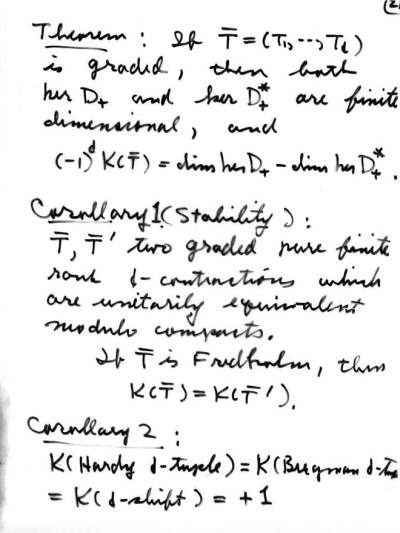 (2
Theorem : If T̄ = (T₁, ..., T_d)
is graded, then both
ker D₊ and ker D₊* are finite
dimensional, and
(-1)^d K(T̄) = dim ker D₊ - dim ker D₊*.
Corollary 1 (Stability) :
T̄, T̄' two graded pure finite
rank d-contractions which
are unitarily equivalent
modulo compacts.
If T̄ is Fredholm, then
K(T̄) = K(T̄').
Corollary 2 :
K(Hardy d-tuple) = K(Bergman d-tu
= K(d-shift) = +1